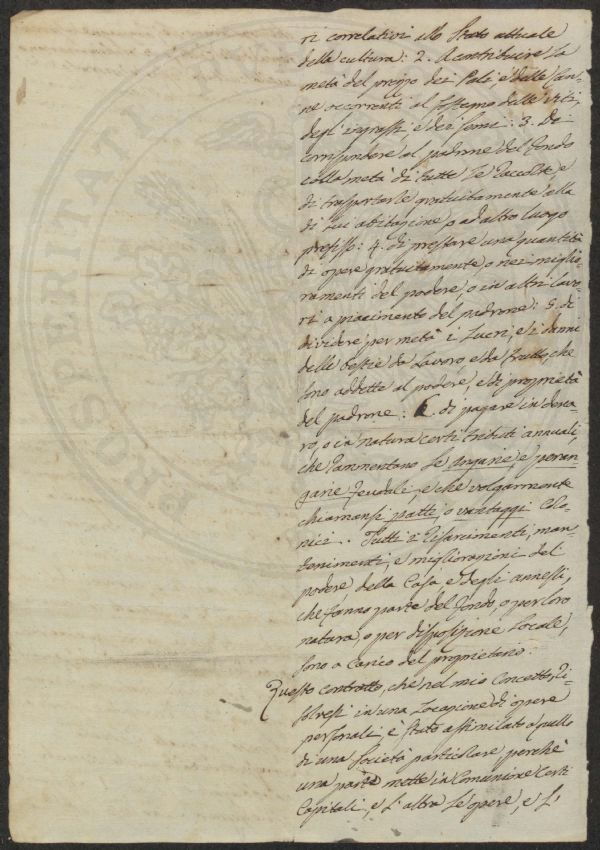 ri correlativi allo Stato attuale
della cultura: 2. A contribuire la
metà del prezzo dei Pali, e delle Can-
ne occorrenti al sostegno delle Viti,
degli ingrassi e dei semi: 3. Di
corrispondere al padrone del Fondo
colla metà di tutte le Raccolte, e
di trasportarle gratuitamente alla
di lui abitazione, o ad altro luogo
prefisso: 4. di prestare una quantità
di opere gratuitamente o nei miglio-
ramenti del podere, o in altri lavo-
ri a piacimento del padrone: 5. di
dividere per metà i Lucri, e i danni
delle bestie da Lavoro e da frutto, che
sono addette al podere, e di proprietà
del padrone: 6. di pagare in dena-
ro, o in natura certi tributi annuali,
che rammentano le angarie, e peran-
garie feudali, e che volgarmente
chiamansi patti, o vantaggi Colo-
nici. Tutti i Risarcimenti, man-
tenimenti, e migliorazioni del
podere, della Casa e degli annessi,
che fanno parte del fondo, o per loro
natura, o per disposizione Locale,
sono a carico del proprietario.
Questo contratto, che nel mio Concetto, ri-
solvesi in una Locazione di opere
personali, è stato assimilato a quello
di una Società particolare perchè
una parte mette in Comunione Certi
Capitali, e l'altra le opere, e l'
PROSPERITATI